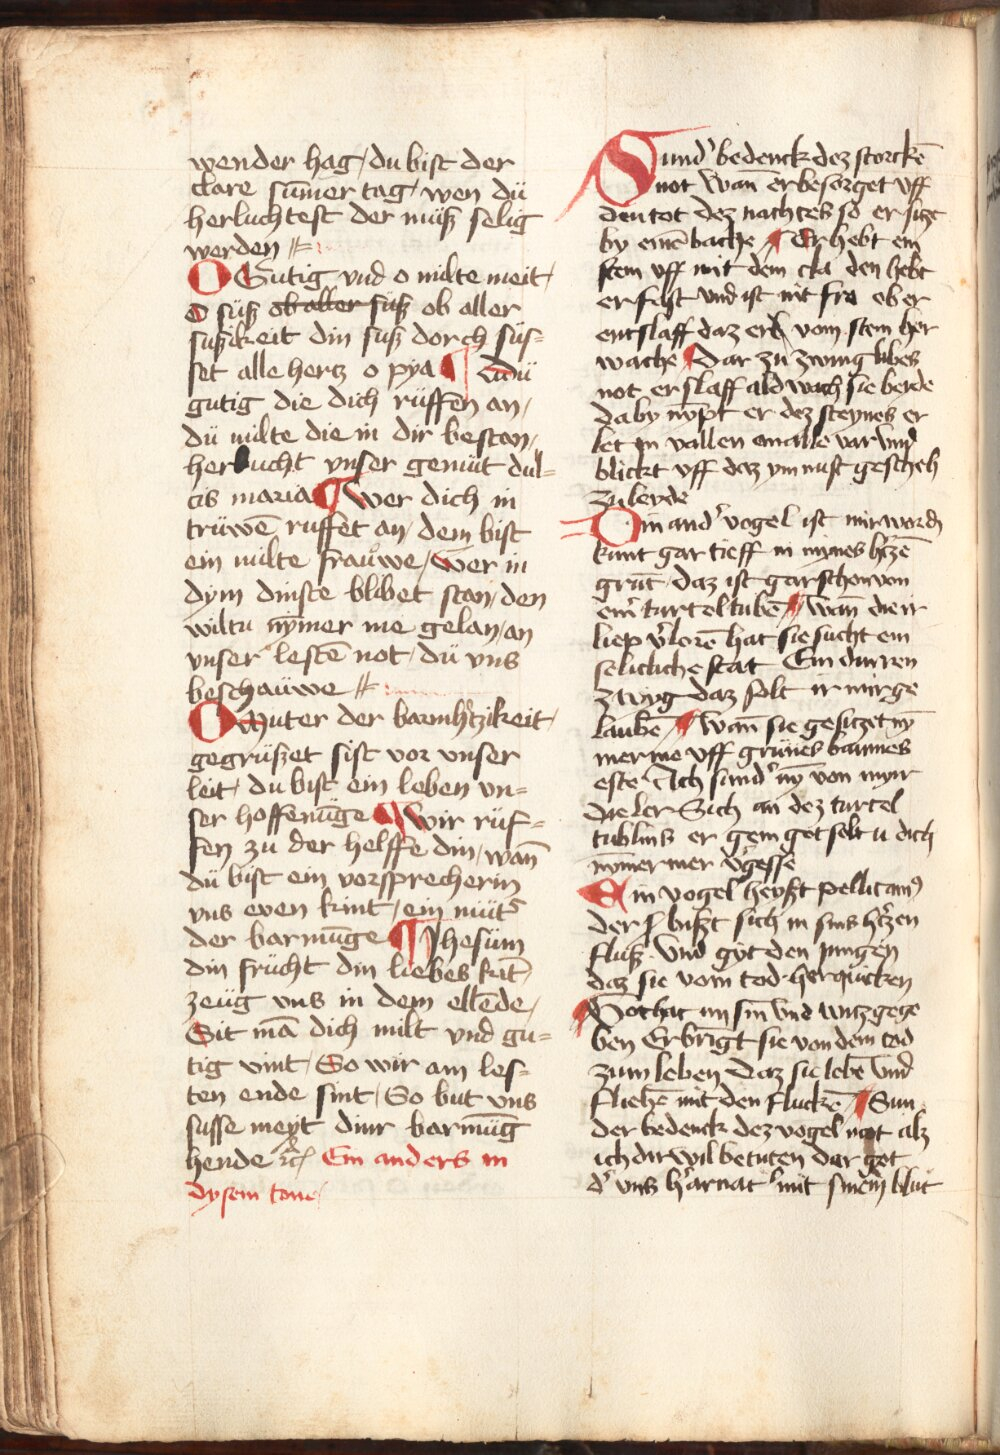 wender hag / du bist der
clare sům̄er tag / wen dü
herluchtest der müsz selig
werden
O Gutig vnd o milte meit /
O süsz ob aller süsz ob aller
suszikeit din susz dorch süs=
set alle hertz o pya ¶ Vdü
gutig die dich rüffen an /
dü milte die in dir bestan /
herlucht vnser gemüt dul=
cis maria ¶ Wer dich in
trüwē ruffet an / dem bist
ein milte frauwe / Wer in
dym dinste blibet stan / den
wiltu nȳmer me gelan / an
vnser lestē not / dü vns
beschaüwe
O Muter der barmh'tzikeit /
gegrüszet sist vor vnser
leit / du bist ein leben vn=
ser hoffenūge ¶ Wir rüf=
fen zu der helffe din / wan̄
dü bist ein vorsprecherin
vns even kint / ein müt'
der barmūge ¶ Jhesüm
din frücht din liebes kīt /
zeüg vns in dem ellēde /
Sit mā dich milt vnd gu=
tig vint / So wir am les=
ten ende sint / So but vns
susse meyt diner barmūg
hende rc̄ Ein anders in
dysem tone /
Sund' bedenck dez storckē
not Wan̄ er besorget vff
den tot dez nachtes so er size
by einē bache ¶ Er hebt ein
stein vff mit dem cla den hebt
er fast Vnd ist nit fro ob er
entslaff daz er vom stein her
wache ¶ Dar zu zwing libes
not er slaff ald wach sie beide
da by nympt er dez steynes er
let in vallen an alle var Vnd
blickt vff daz ym nust gescheh
zu leyde
Ein and' vogel ist mir word̄
kunt gar tieff in mynes h'zē
grūt / daz ist gar schon von
ein' turteltubē ¶ Wan̄ die ir
liep v'lorē hat sie sucht ein
selicliche stat Ein durren
zwyg daz solt ir mir ge
laubē ¶ Wan̄ sie gesitzet ny
mer me vff grünes baumes
este Ach sund' ny von myr
die ler Sich an dez turtel
tublins er gein got solt u dich
nȳmer mer v'gesse
Ein vogel heyszt pellicam9
der biszt sich in sins h'tzen
flusz Vnd gyt den jungen
daz sie vom tod herquicken
¶ Got hat im sin̄ Vnd wiz gege
ben Er brīgt sie von dem tod
zum leben Daz sie lebē Vnd
fliehē mit den fluckē ¶ Sun
der bedenck dez vogel nat alz
ich dir wil betuten Dar got
d' vns h' arnat mit sinem blüt